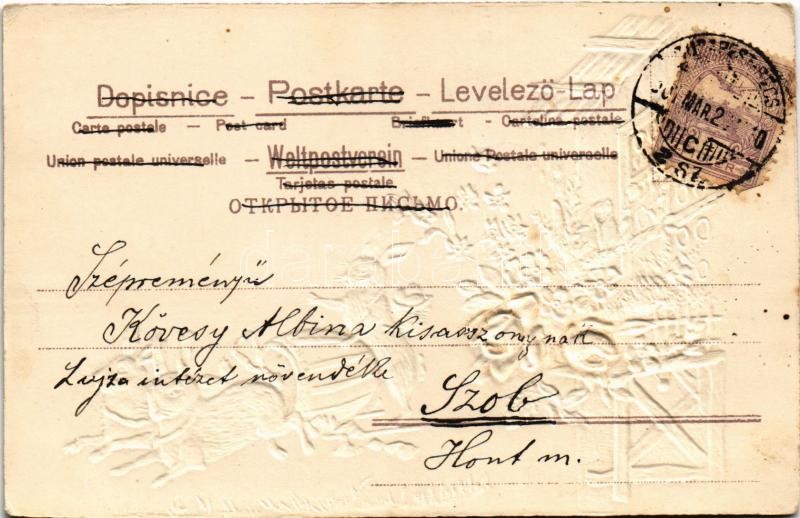 Dopisnice – Postkarte – Levelező-Lap
Carte postale – Post card Briefkaart – Cartolina postale
Union postale universelle – Weltpostverein – Unione Postale universelle
Tarjetas postale
ОТКРЫТОЕ ПИСЬМО.
Szépreményű
Kövesy Albina kisasszonynak
Lujza intézet növendéke
Szob
Hont m.
darabanth
MAR. 2
2. SZ.